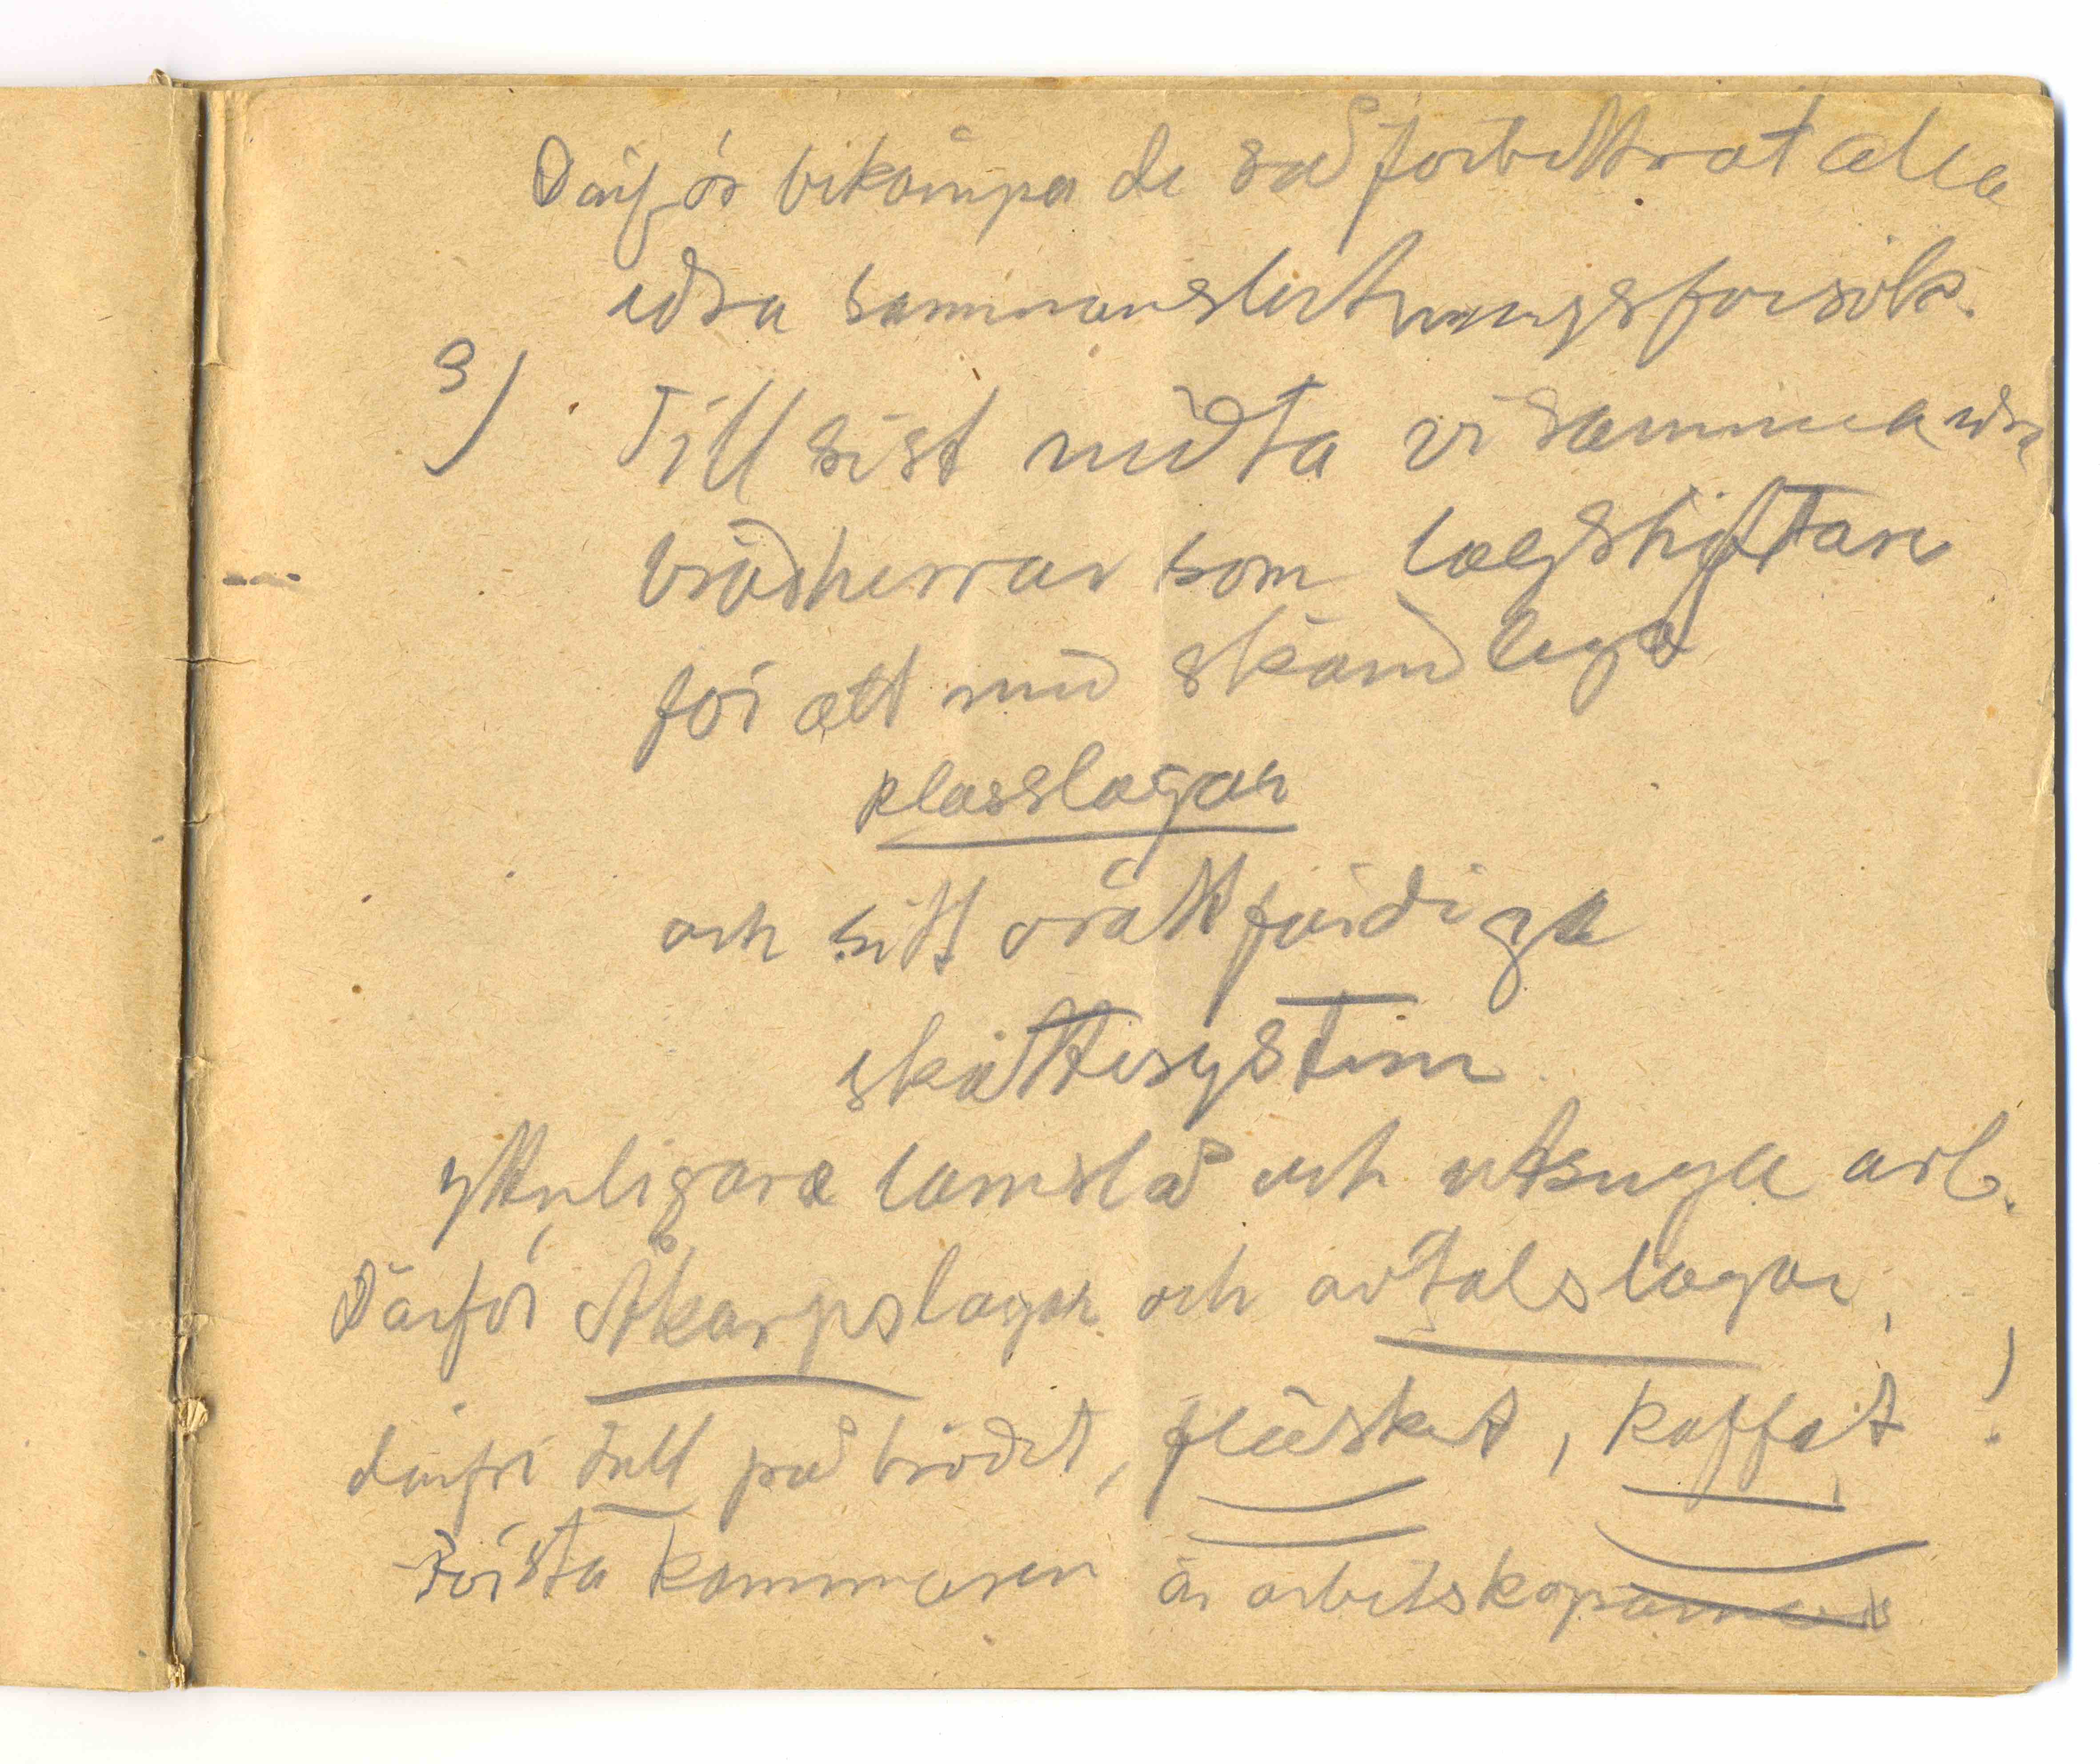 Därför bekämpa de så förbittrat alla
edra sammanslutningsförsök.
3) Till sist möta vi samma edra
brödherrar som lagstiftare
för att med skändliga
klasslagar
och sitt orättfärdiga
skattesystem
ytterligare lamslå och utsuga arb.
Därför Åkarpslagar och avtalslagar,
därför tull på brödet, fläsket, kaffet!
Första kammaren är arbetsköparnas